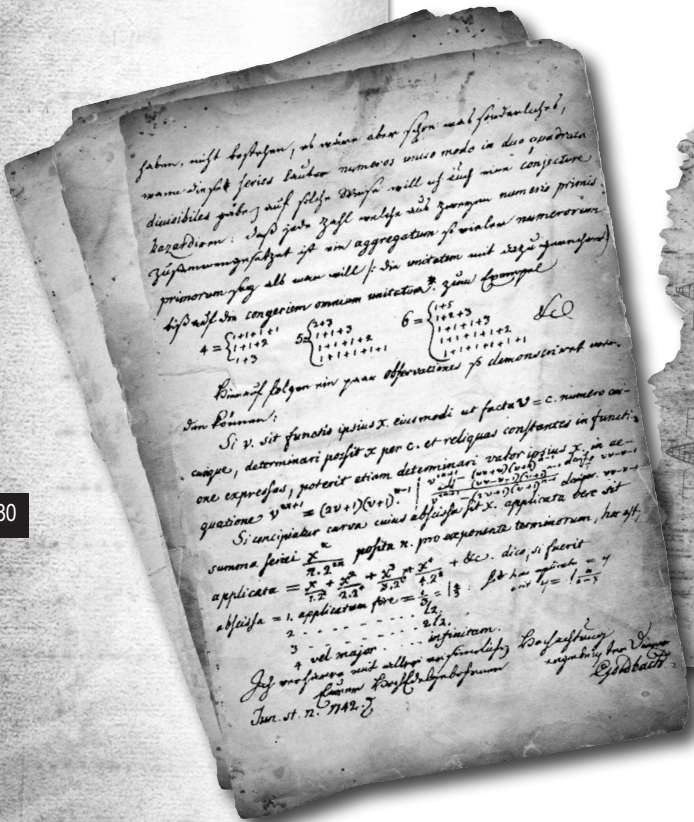 30
haben, nicht bestehen, es wäre aber schon was sonderliches,
wann eine solche series lauter numeros unico modo in duo quadrata
divisibiles gäbe, auf solche Weise will ich auch eine conjecture
hazardiren: daß jede Zahl welche aus zweyen numeris primis
zusammengesetzt ist ein aggregatum so vieler numerorum
primorum sey als man will /: die unitatem mit dazu gerechnet :/
biß auf den congeriem omnium unitatum*. zum Exempel
4 = { 1+1+1+1 / 1+1+2 / 1+3  5 = { 2+3 / 1+1+3 / 1+1+1+2 / 1+1+1+1+1  6 = { 1+5 / 1+2+3 / 1+1+1+3 / 1+1+1+1+2 / 1+1+1+1+1+1  &c
Hierauf folgen ein paar observationes so demonstriret wer-
den können:
Si v. sit functio ipsius x. eiusmodi ut facta v = c. numero cui-
cunque, determinari possit x per c. et reliquas constantes in functi-
one expressas, poterit etiam determinari valor ipsius x. in ae-
quatione v²ⁿ⁺¹ = (2v+1)(v+1)ⁿ⁻¹.
Si concipiatur curva cuius abscissa sit x. applicata vero sit
summa seriei xⁿ/n.2²ⁿ posita n. pro exponente terminorum, hoc est,
applicata = x/1.2² + x²/2.2⁴ + x³/3.2⁶ + x⁴/4.2⁸ + &c. dico, si fuerit
abscissa = 1. applicatam fore = l4/3
2 - - - - - l2.
3 - - - - - 2l2.
4 vel major - - - infinitam.
Ich verharre mit aller Hochachtung
Euren Hochedelgebohrnen
ergebenster Diener
Goldbach.
Jun. st. n. 1742.